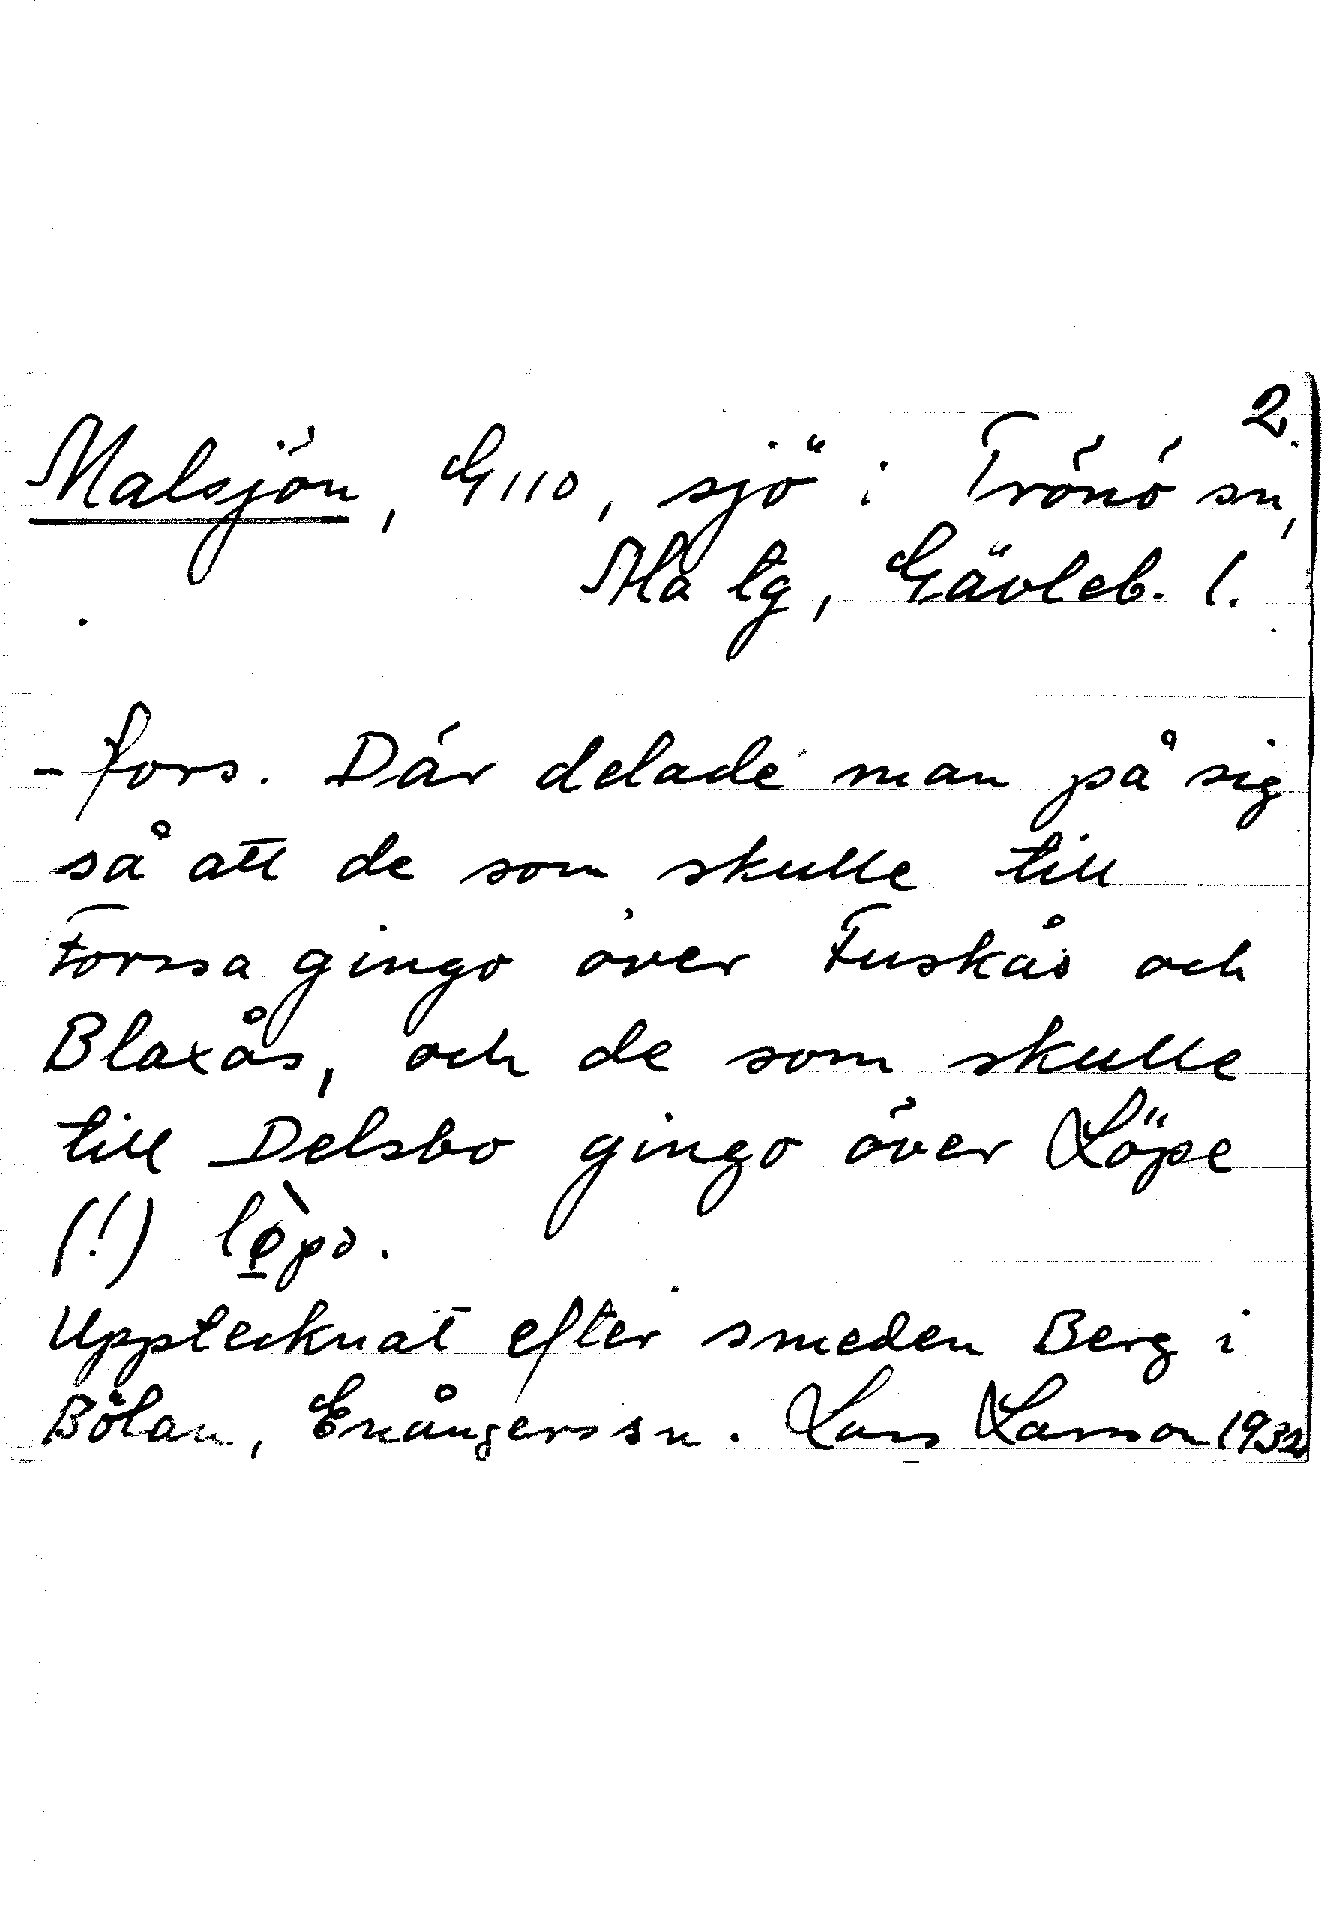 2.
Malsjön, G110, sjö i Trönö sn,
Ala tg, Gävleb. l.
-fors. Där delade man på sig
så att de som skulle till
Forssa gingo över Fuskås och
Blaxås, och de som skulle
till Delsbo gingo över Löpe
(!) lø̱̀pə.
Upptecknat efter smeden Berg i
Bölan, Enångers sn. Lars Larson 1932